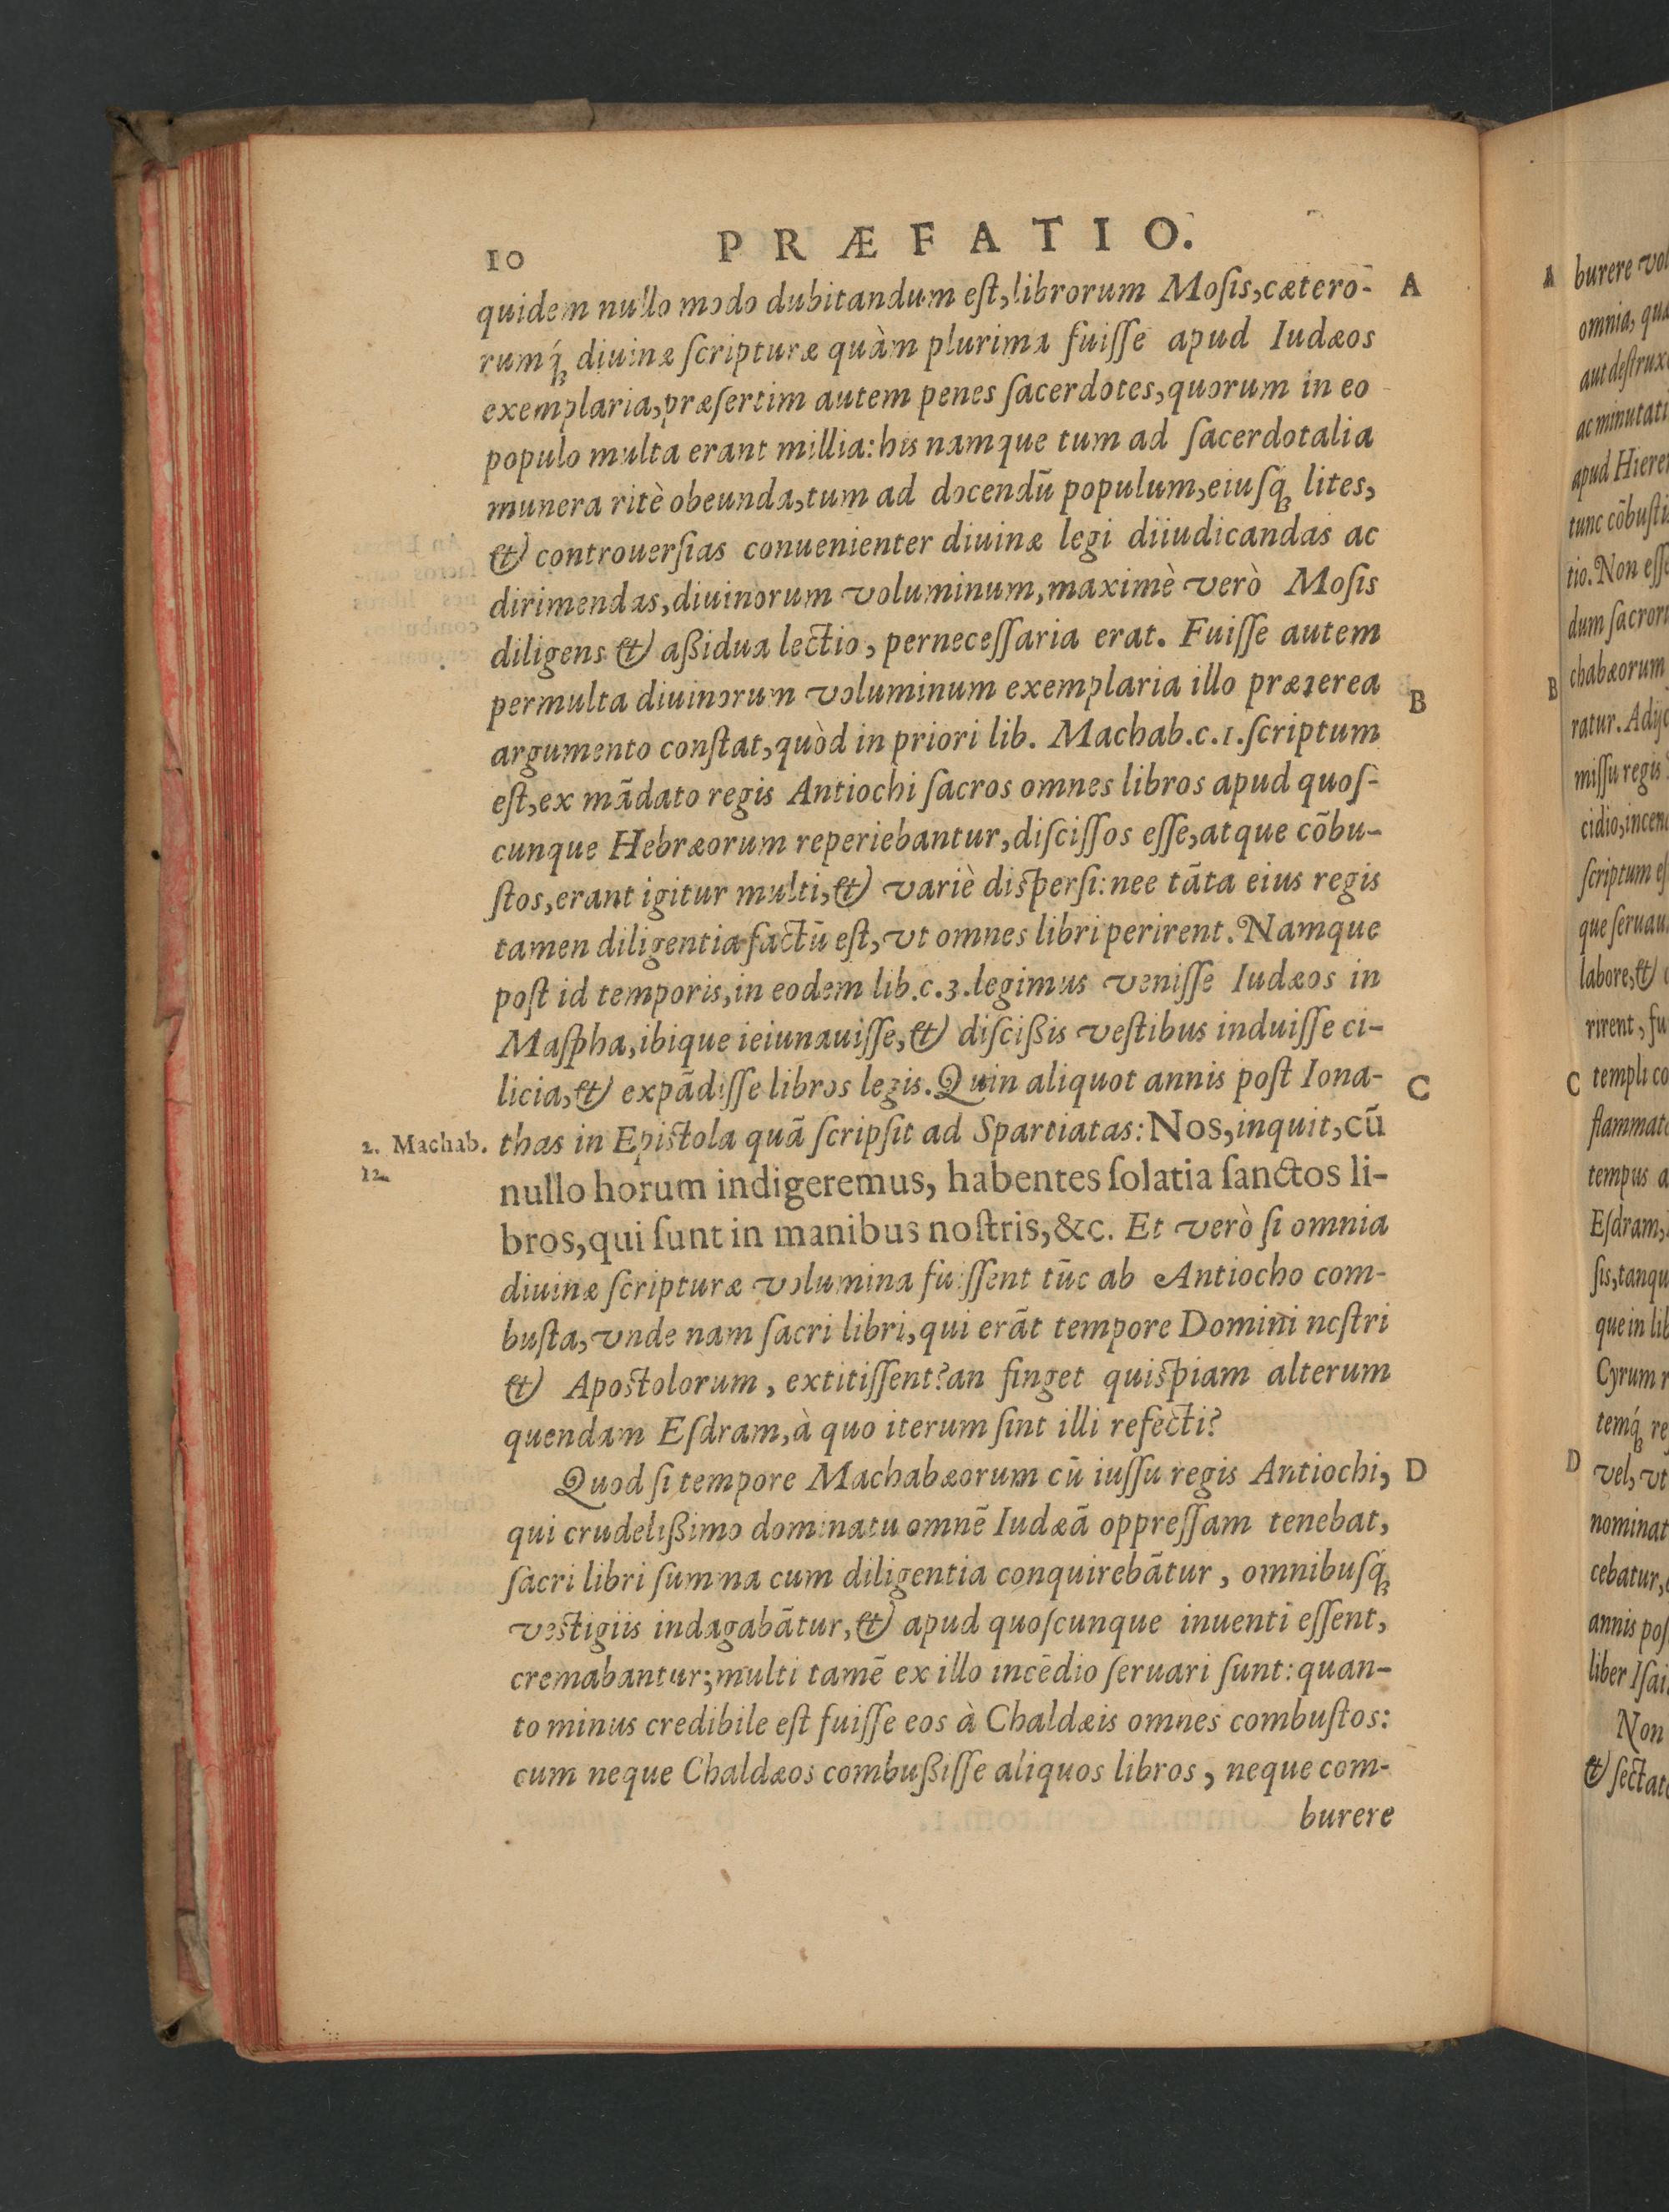 10 PRÆFATIO.
quidem nullo modo dubitandum eſt, librorum Moſis, cætero- A
rumq́ꝫ diuinæ ſcripturæ quàm plurima fuiſſe apud Iudæos
exemplaria, præſertim autem penes ſacerdotes, quorum in eo
populo multa erant millia: his namque tum ad ſacerdotalia
munera ritè obeunda, tum ad docendū populum, eiuſq́ꝫ lites,
& controuerſias conuenienter diuinæ legi diiudicandas ac
dirimendas, diuinorum voluminum, maximè verò Moſis
diligens & aßidua lectio, perneceſſaria erat. Fuiſſe autem
permulta diuinorum voluminum exemplaria illo præterea B
argumento conſtat, quòd in priori lib. Machab. c. 1. ſcriptum
eſt, ex mādato regis Antiochi ſacros omnes libros apud quoſ-
cunque Hebræorum reperiebantur, diſciſſos eſſe, atque cōbu-
ſtos, erant igitur multi, & variè diſperſi: nee tāta eius regis
tamen diligentia factū eſt, vt omnes libri perirent. Namque
poſt id temporis, in eodem lib. c. 3. legimus veniſſe Iudæos in
Maſpha, ibique ieiunauiſſe, & diſcißis veſtibus induiſſe ci-
licia, & expādiſſe libros legis. Quin aliquot annis poſt Iona- C
2. Machab. 
12.
thas in Epiſtola quā ſcripſit ad Spartiatas: Nos, inquit, cū
nullo horum indigeremus, habentes ſolatia ſanctos li-
bros, qui ſunt in manibus noſtris, &c. Et verò ſi omnia
diuinæ ſcripturæ volumina fuiſſent tūc ab Antiocho com-
buſta, vnde nam ſacri libri, qui erāt tempore Domini noſtri
& Apoſtolorum, extitiſſent? an finget quiſpiam alterum
quendam Eſdram, à quo iterum ſint illi refecti?
Quod ſi tempore Machabæorum cū iuſſu regis Antiochi, D
qui crudelißimo dominatu omnē Iudæā oppreſſam tenebat,
ſacri libri ſumma cum diligentia conquirebātur, omnibuſq́ꝫ
veſtigiis indagabātur, & apud quoſcunque inuenti eſſent,
cremabantur; multi tamē ex illo incēdio ſeruari ſunt: quan-
to minus credibile eſt fuiſſe eos à Chaldæis omnes combuſtos:
cum neque Chaldæos combußiſſe aliquos libros, neque com-
burere
A burere
omnia,
aut
ac
apud
tunc
tio. Non
dum
B chabæorum
ratur.
miſſu regis
cidio,
ſcriptum
que
labore, &
rirent,
C templi
tempus
Eſdram,
que in
Cyrum
D vel, vt
cebatur,
annis
liber
Non
&